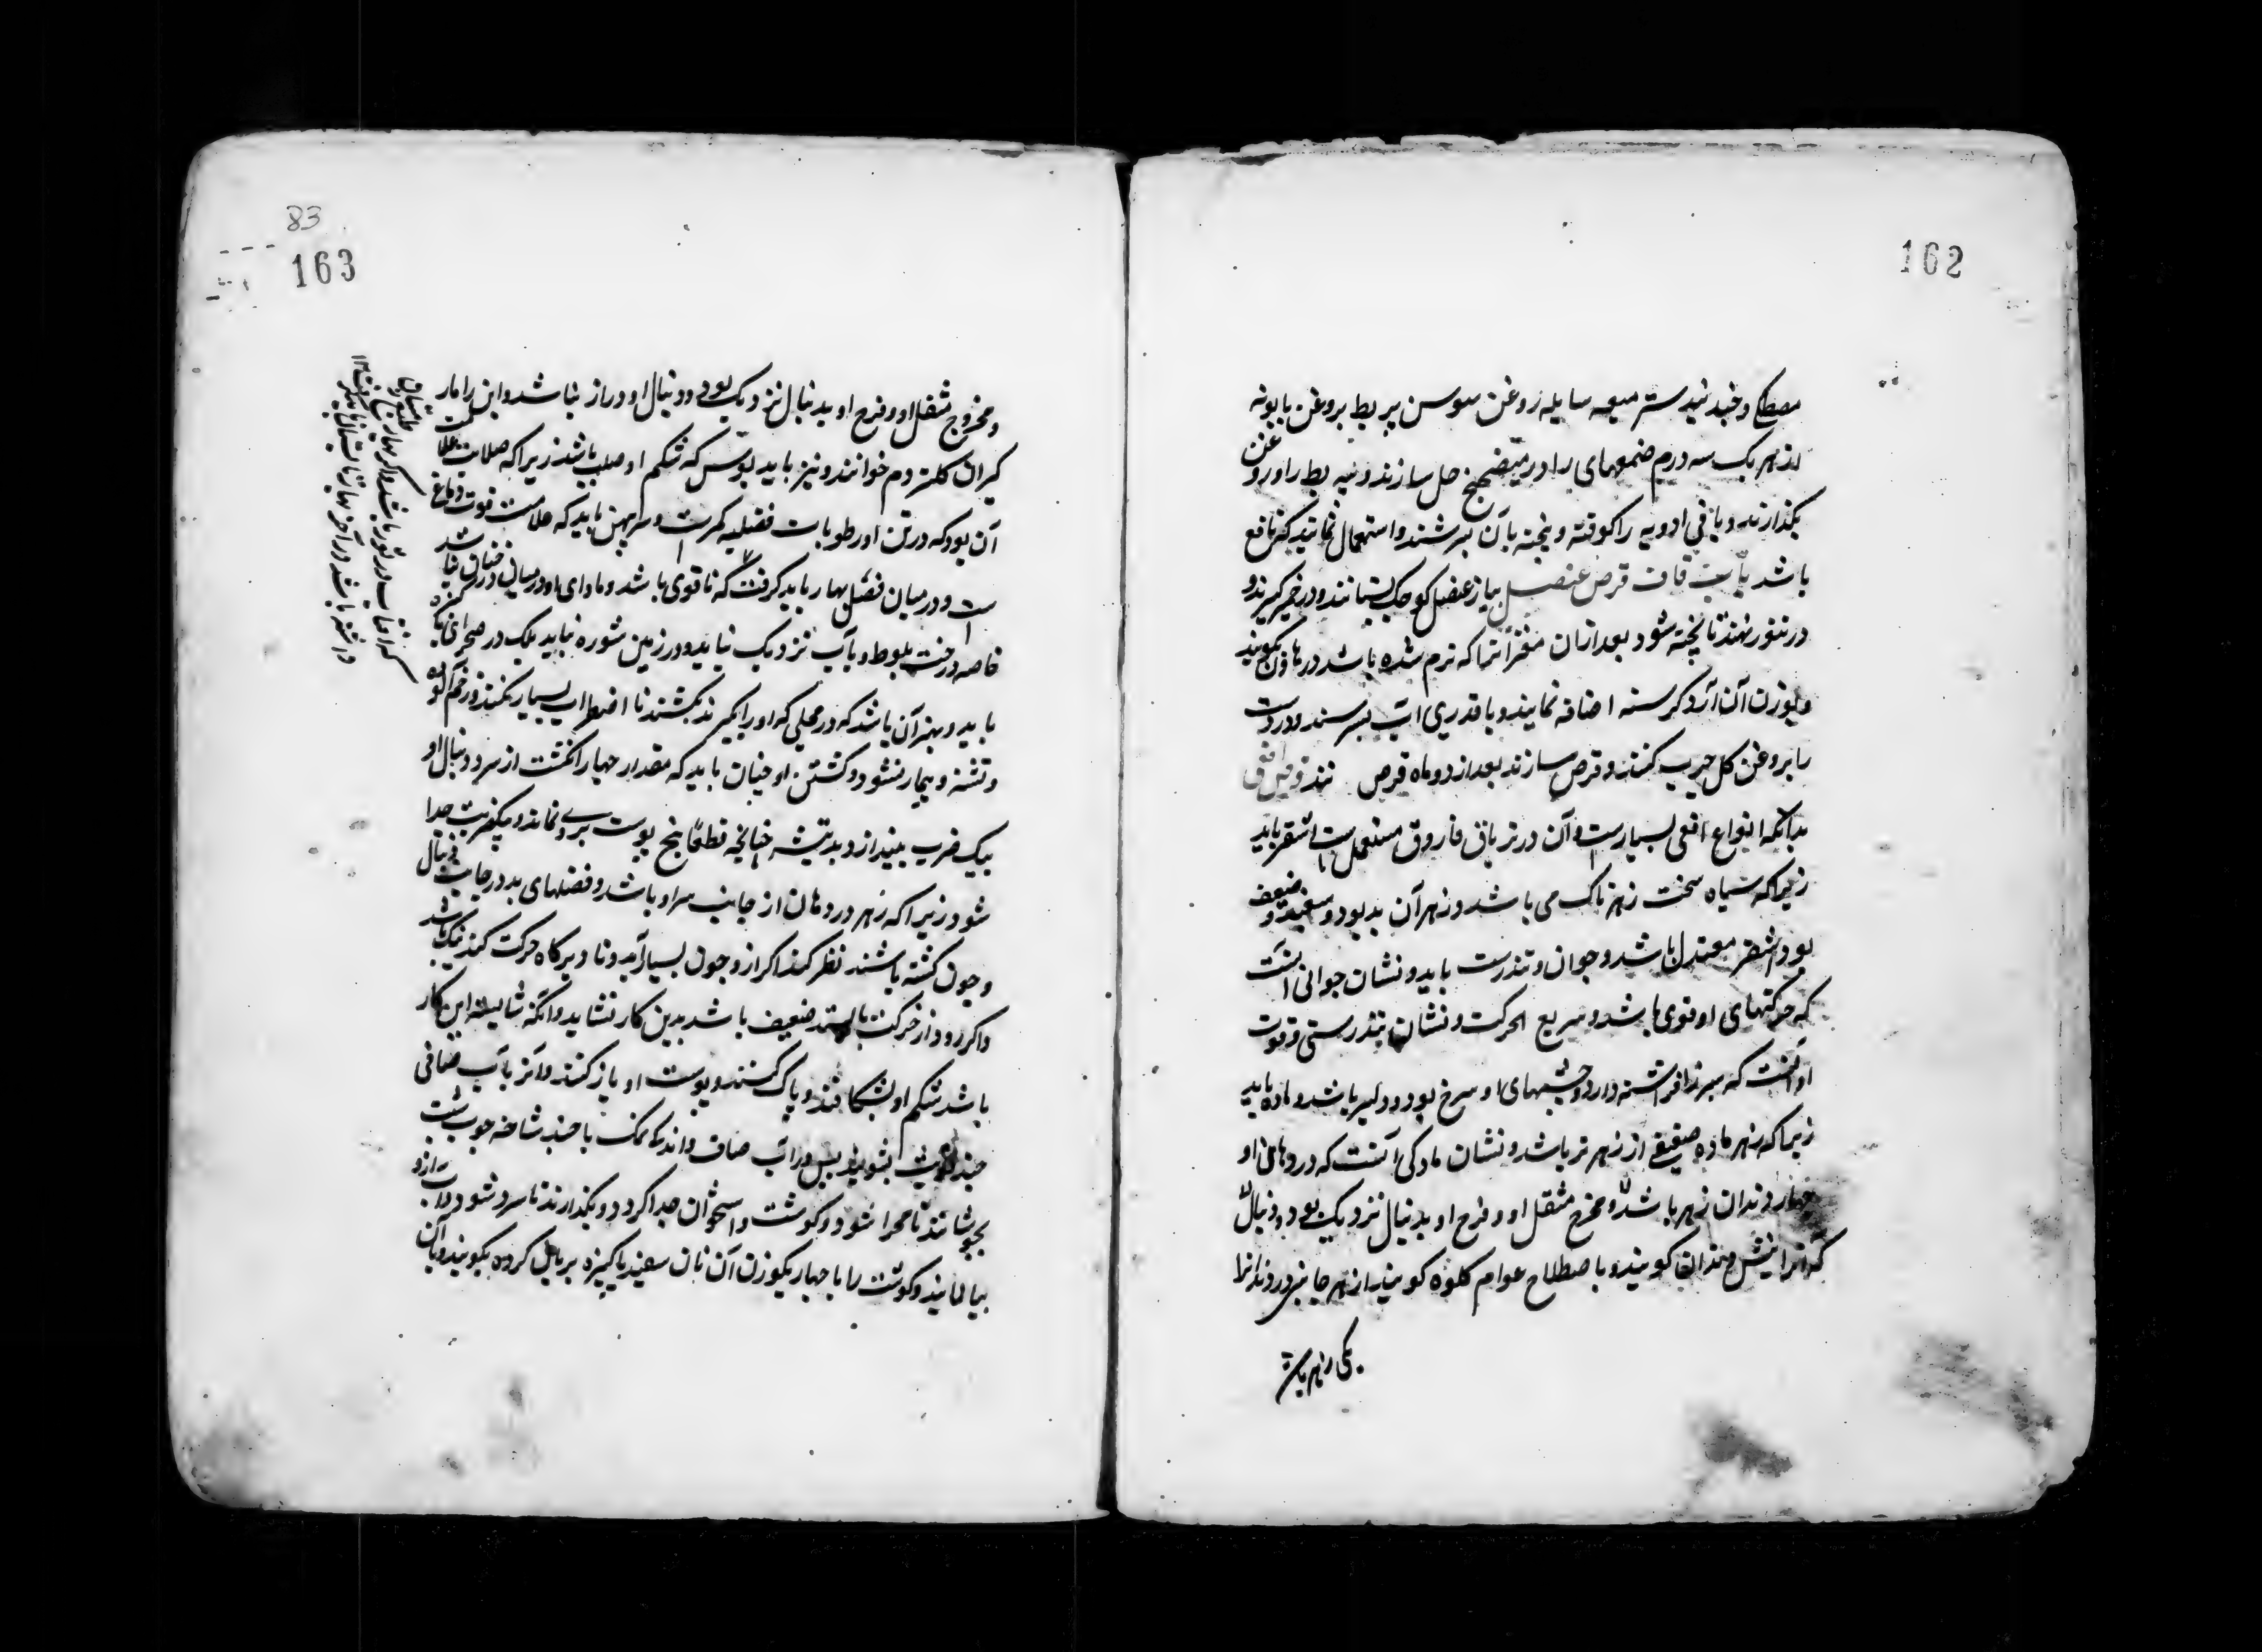 162
مصطکی و جند بیدستر میعه سایله روغن سوسن پیه بط بروغن بابونه
از هر یک سه درم ضمغهای را در میفختج حل سازند و پیه بط را در روغن
بکدازند و باقی ادویه را کوفته و پیخته بآن بسرشند و استعمال نمایند که نافع
باشد باب قاف قرص عنصل پیاز عنصل کوچک بستانند و در خمیر کیرند و
در تنور نهند تا پخته شود بعد ازان مغز آنرا که نرم شده باشد در هاون بکوبند
و بوزن آن آرد کرسنه اضافه نمایند و با قدری شراب بسرشند و دست
را بروغن کل چرب کنند و قرص سازند بعد از دو ماه قرص نند قرص افعی
بدانکه انواع افعی بسیارست و آن در تریاق فاروق مستعمل است اشقر باید
زیرا که سیاه سخت زهرناک می باشد و زهر آن بد بود و سفید ضعیف
بود و اشقر معتدل باشد و جوان و تندرست باید و نشان جوانی آنست
که حرکتهای او قوی باشد و سریع الحرکت و نشان تندرستی و قوت
او آنست که سر افراشته دارد و چشمهای او سرخ بود و دلیر باشد و ماده باید
زیرا که زهر ماده ضعیف از زهر نر باشد و نشان مادکی آنست که در دهان او
چهار دندان زهر باشد و مخرج مثقل او و فرج او بدنبال نزدیک بود و دنبال
کویند و باصطلاح عوام کلوه کویند از هر جانبی دو دندان
یکی زهر
83
163
و مخروج مثقل او و فرج او بدنبال نزدیک بود و دنبال او دراز نباشد و این را مار
کیران کلته دم خوانند و نیز باید بوسی که شکم او صلب باشد زیرا که صلابت علامت
آن بود که در تن او رطوبات فضلیه کمترست و سر پهن باید که علامت قوت دماغ
ست و در میان فصل بهار باید کرفت که تا قوی باشد و ماوای او در میان درختان نباشد
خاصه درخت بلوط و بآب نزدیک نیاید و در زمین شوره نباید بلک در صحرای پاکیزه
باید و بهتر آن باشد که در محلی که او را بکیرند بکشند تا اضطراب بسیار نکند و زخم آلوده
و تشنه و بیمار نشود و کشتن او چنان باید که مقدار چهار انکشت از سر و دنبال او
بیک ضرب بیندازد بتیشه چنانچه قطعا هیچ پوست برو نماند و بیکضربت جدا
شود زیرا که زهر در دهان از جانب سر او باشد و فضلهای بد در جانب دنبال
و چون کشته باشند نظر کنند اکر ازو خون بسیار آید و تا دیرکاه حرکت کند نیک باشد
و اکر زود از حرکت بایستد ضعیف باشد بدین کار نشاید و آنکه شایسته این کار
باشد شکم او بشکافند و پاک کنند و پوست او باز کنند و آنرا بآب صافی
چند نوبت بشویند پس در آب صاف و اندکی نمک با چند شاخه چوب شبت
بجوشانند تا مهرا شود و کوشت و استخوان جدا کردد و بکذارند تا سرد شود و آب ازو
بپالایند و کوشت را با چهار یکوزن آن نان سفید پاکیزه بریان کرده بکوبند و بآن
که آفتاب در ثور باشد و اکر بهار
داشته باشد در آخر بهار تا تابستان باید کرفت ۱۲